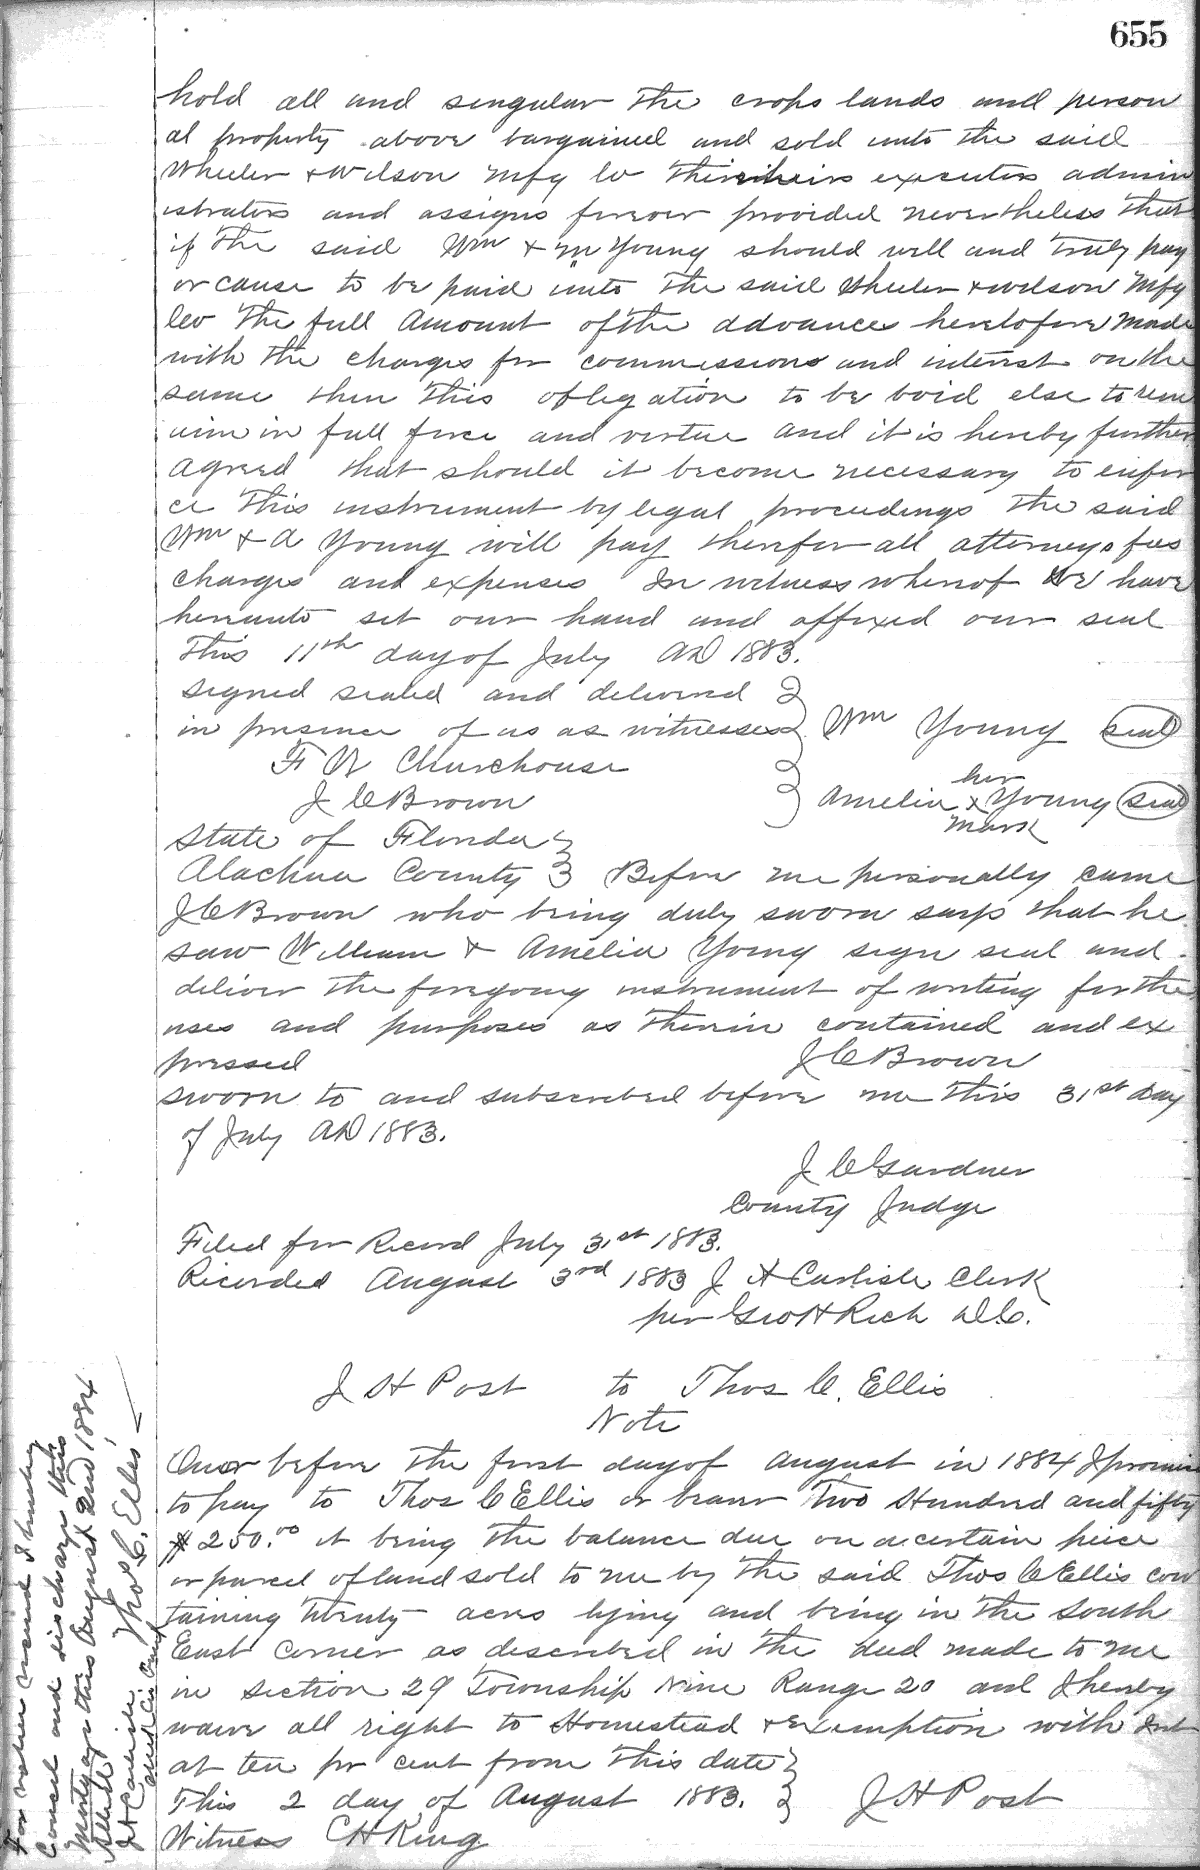 655
hold all and singular the crops lands and person
al property above bargained and sold unto the said
Wheeler & Wilson Mfg Co their heirs executors admin
istrators and assigns forever provided nevertheless that
if the said Wm & M Young should well and truly pay
or cause to be paid unto the said Wheeler & Wilson Mfg
Co the full amount of the advances heretofore made
with the charges for commissions and interest on the
same then this obligation to be void else to rem
ain in full force and virtue and it is hereby further
agreed that should it become necessary to enfor
ce this instrument by legal proceedings the said
Wm & A Young will pay therefor all attorneys fees
charges and expenses In witness whereof we have
hereunto set our hand and affixed our seal
this 11th day of July AD 1883.
Signed sealed and delivered
in presence of us as witnesses Wm Young seal
F W Churchouse
her
J C Brown Amelia x Young seal
mark
State of Florida
Alachua County Before me personally came
J C Brown who being duly sworn says that he
saw William & Amelia Young sign seal and
deliver the foregoing instrument of writing for the
uses and purposes as therein contained and ex
pressed J C Brown
sworn to and subscribed before me this 31st day
of July AD 1883.
J C Gardner
County Judge
Filed for Record July 31st 1883.
Recorded August 3rd 1883 J A Carlisle Clerk
per Geo H Rich D.C.
J H Post to Thos C. Ellis
Note
On or before the first day of August in 1884 I promise
to pay to Thos C Ellis or bearer Two Hundred and fifty
$250.00 it being the balance due on a certain piece
or parcel of land sold to me by the said Thos C Ellis con
taining twenty acres lying and being in the South
East corner as described in the deed made to me
in section 29 Township Nine Range 20 and I hereby
waive all right to Homestead & exemption with Int
at ten pr cent from this date
This 2 day of August 1883. J H Post
Witness C H King
For value received I hereby
cancel and discharge this
Mortgage this August 2nd 1884
Thos C. Ellis
Attest
J A Carlisle
Clerk Cir. Court